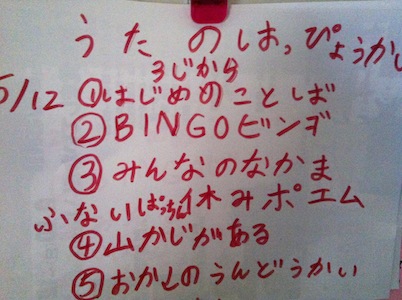 うたのはっぴょうかい
3じから
5/12 ①はじめのことば
②BINGOビンゴ
③みんなのなかま
休みポエム
④山かじがある
⑤おかしのうんどうかい